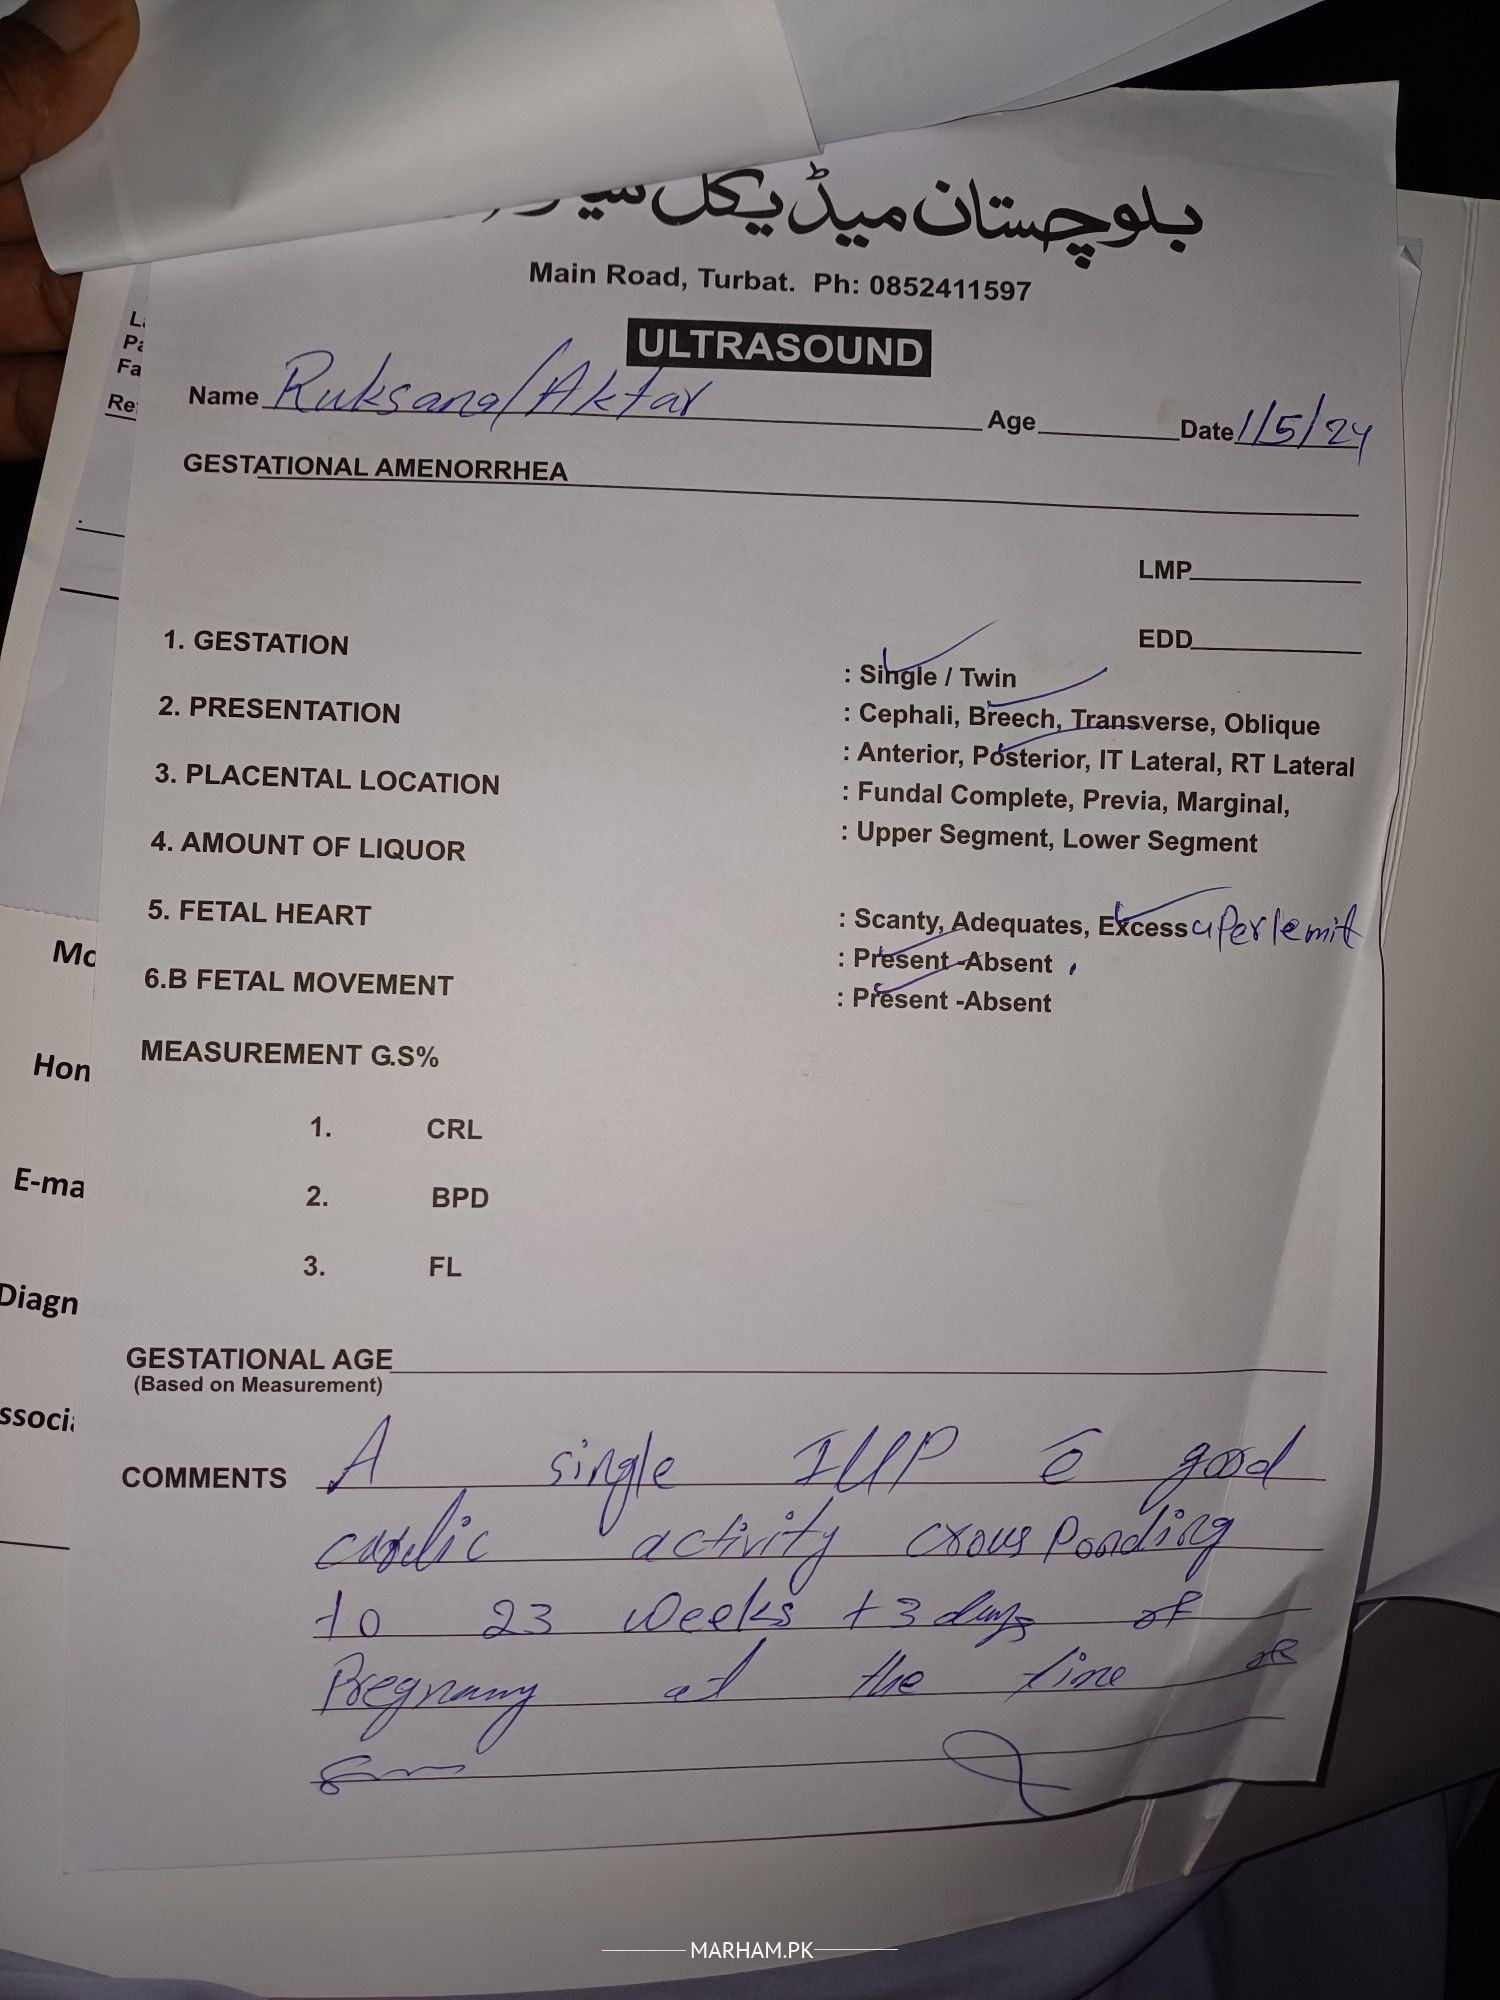 بلوچستان میڈیکل
Main Road, Turbat. Ph: 0852411597
ULTRASOUND
Name Ruksana/Aktar Age Date 1/5/24
GESTATIONAL AMENORRHEA
LMP
EDD
1. GESTATION : Single / Twin
2. PRESENTATION : Cephali, Breech, Transverse, Oblique
3. PLACENTAL LOCATION : Anterior, Posterior, IT Lateral, RT Lateral
: Fundal Complete, Previa, Marginal,
4. AMOUNT OF LIQUOR : Upper Segment, Lower Segment
5. FETAL HEART : Scanty, Adequates, Excess uper lemit
: Present -Absent
6.B FETAL MOVEMENT : Present -Absent
MEASUREMENT G.S%
1. CRL
2. BPD
3. FL
GESTATIONAL AGE
(Based on Measurement)
COMMENTS A single IUP c̄ good
cardic activity crousponding
to 23 weeks +3 days of
Pregnancy at the time of
L
Pa
Fa
Re
Mo
Hon
E-ma
Diagn
ssocia
MARHAM.PK